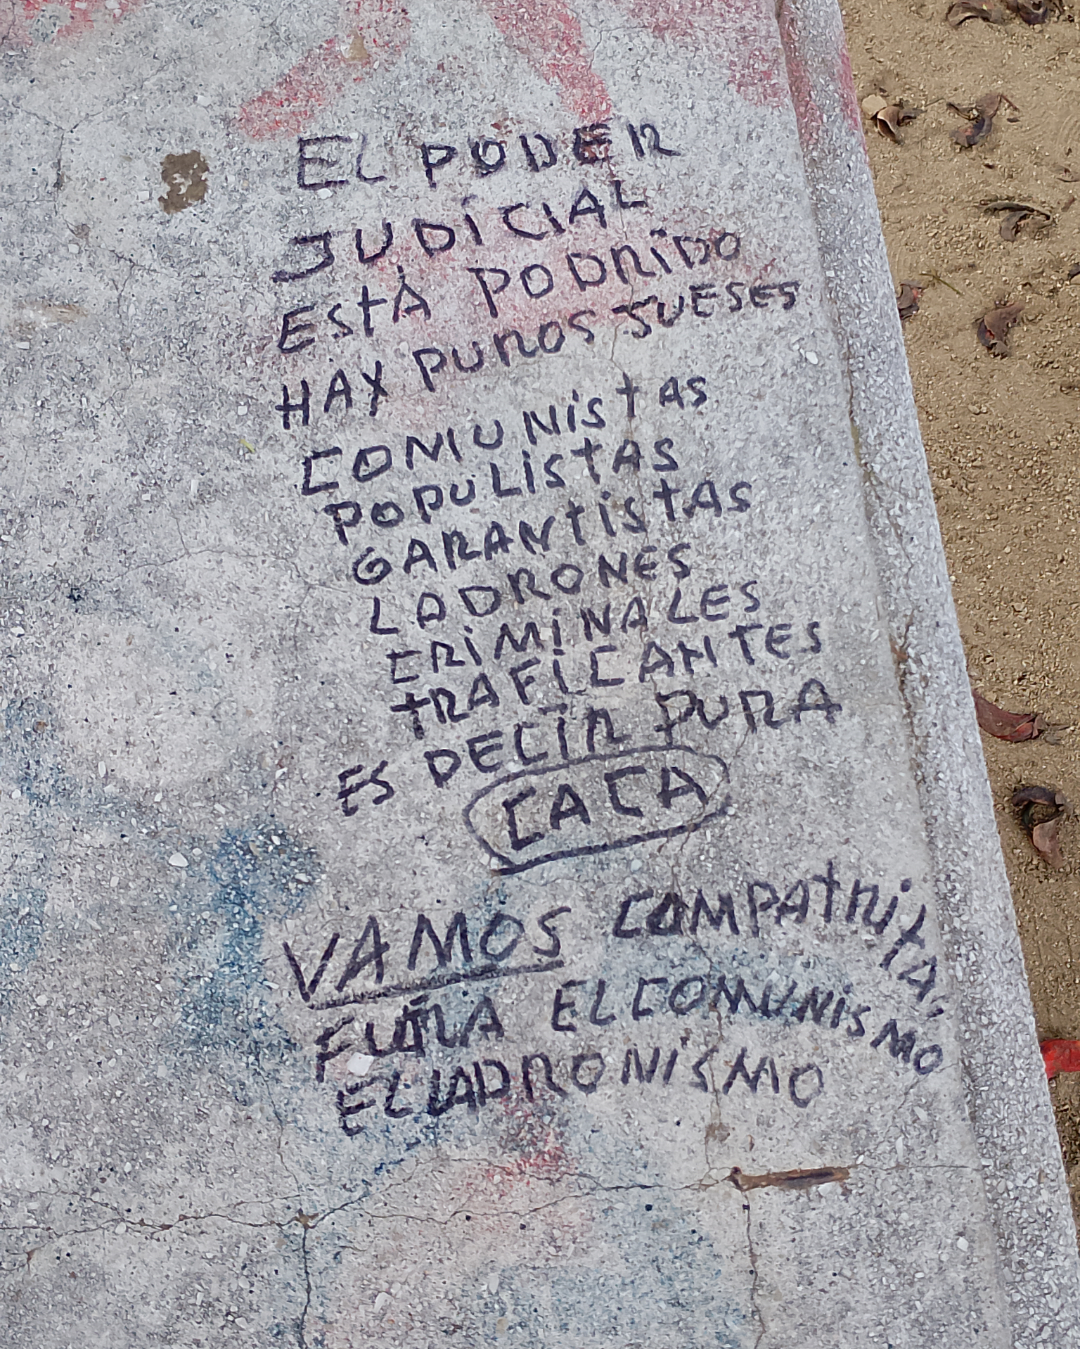 EL PODER
JUDiCIAL
EStÁ PODRiDO
HAY PUROS JUESES
COMUNiStAS
POPULiStAS
GARANtiStAS
LADRONES
CRiMiNALES
tRAFiCANTES
ES DECiR PURA
CACA
VAMOS COMPAtRitA,
FUERA EL COMUNiSMO
EL LADRONiSMO